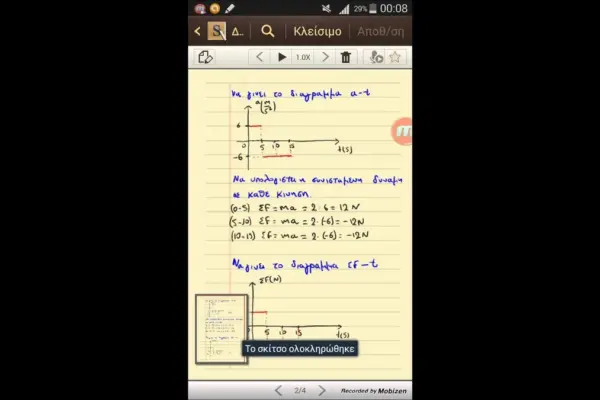 29% 00:08
< S Δ.. Κλείσιμο Αποθ/ση
< 1.0X >
να γινει το διαγραμμα a-t
a(m/s²)
6
0 5 10 15 t(s)
-6
Να υπολογιστει η συνισταμενη δυναμη
σε καθε κινηση.
(0-5) ΣF = ma = 2·6 = 12N
(5-10) ΣF = ma = 2·(-6) = -12N
(10-15) ΣF = ma = 2·(-6) = -12N
Να γινει το διαγραμμα ΣF-t
ΣF(N)
0 5 10 15 t(s)
Το σκίτσο ολοκληρώθηκε
< 2/4 > Recorded by Mobizen